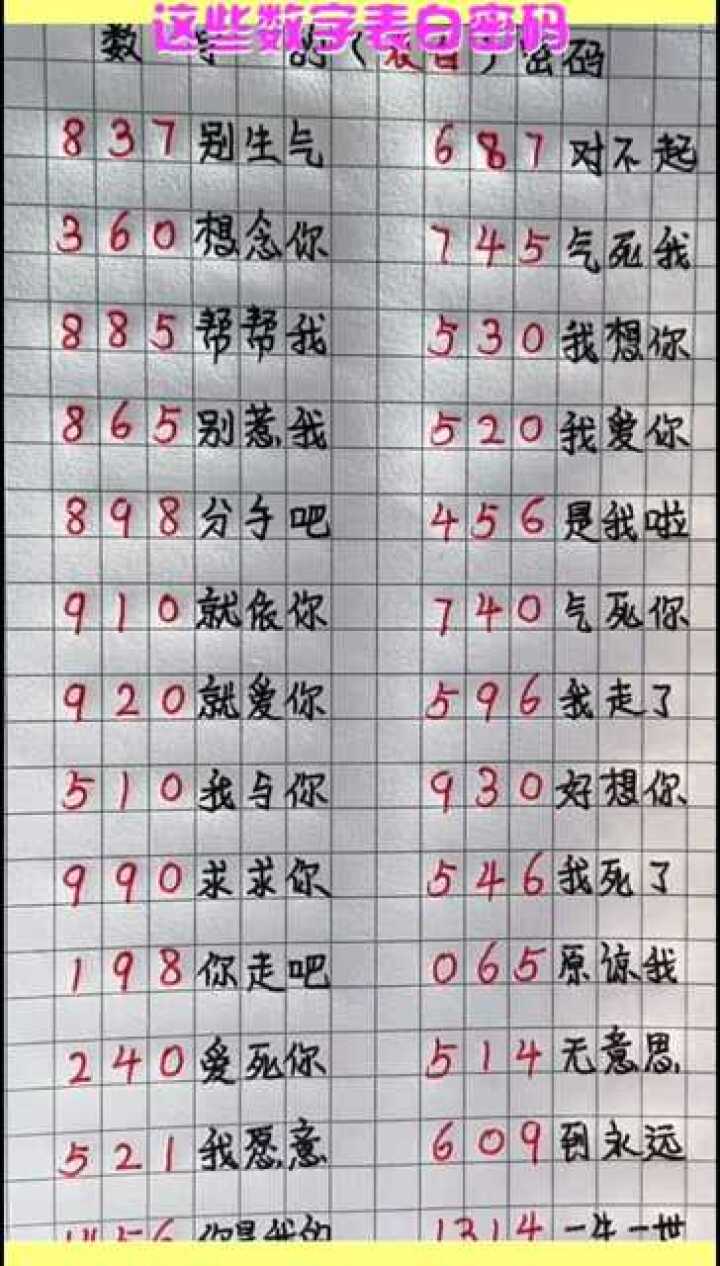 这些数字表白密码
数字的(表白)密码
837别生气 687对不起
360想念你 745气死我
885帮帮我 530我想你
865别惹我 520我爱你
898分手吧 456是我啦
910就依你 740气死你
920就爱你 596我走了
510我与你 930好想你
990求求你 546我死了
198你走吧 065原谅我
240爱死你 514无意思
521我愿意 609到永远
你是我的 1314一生一世